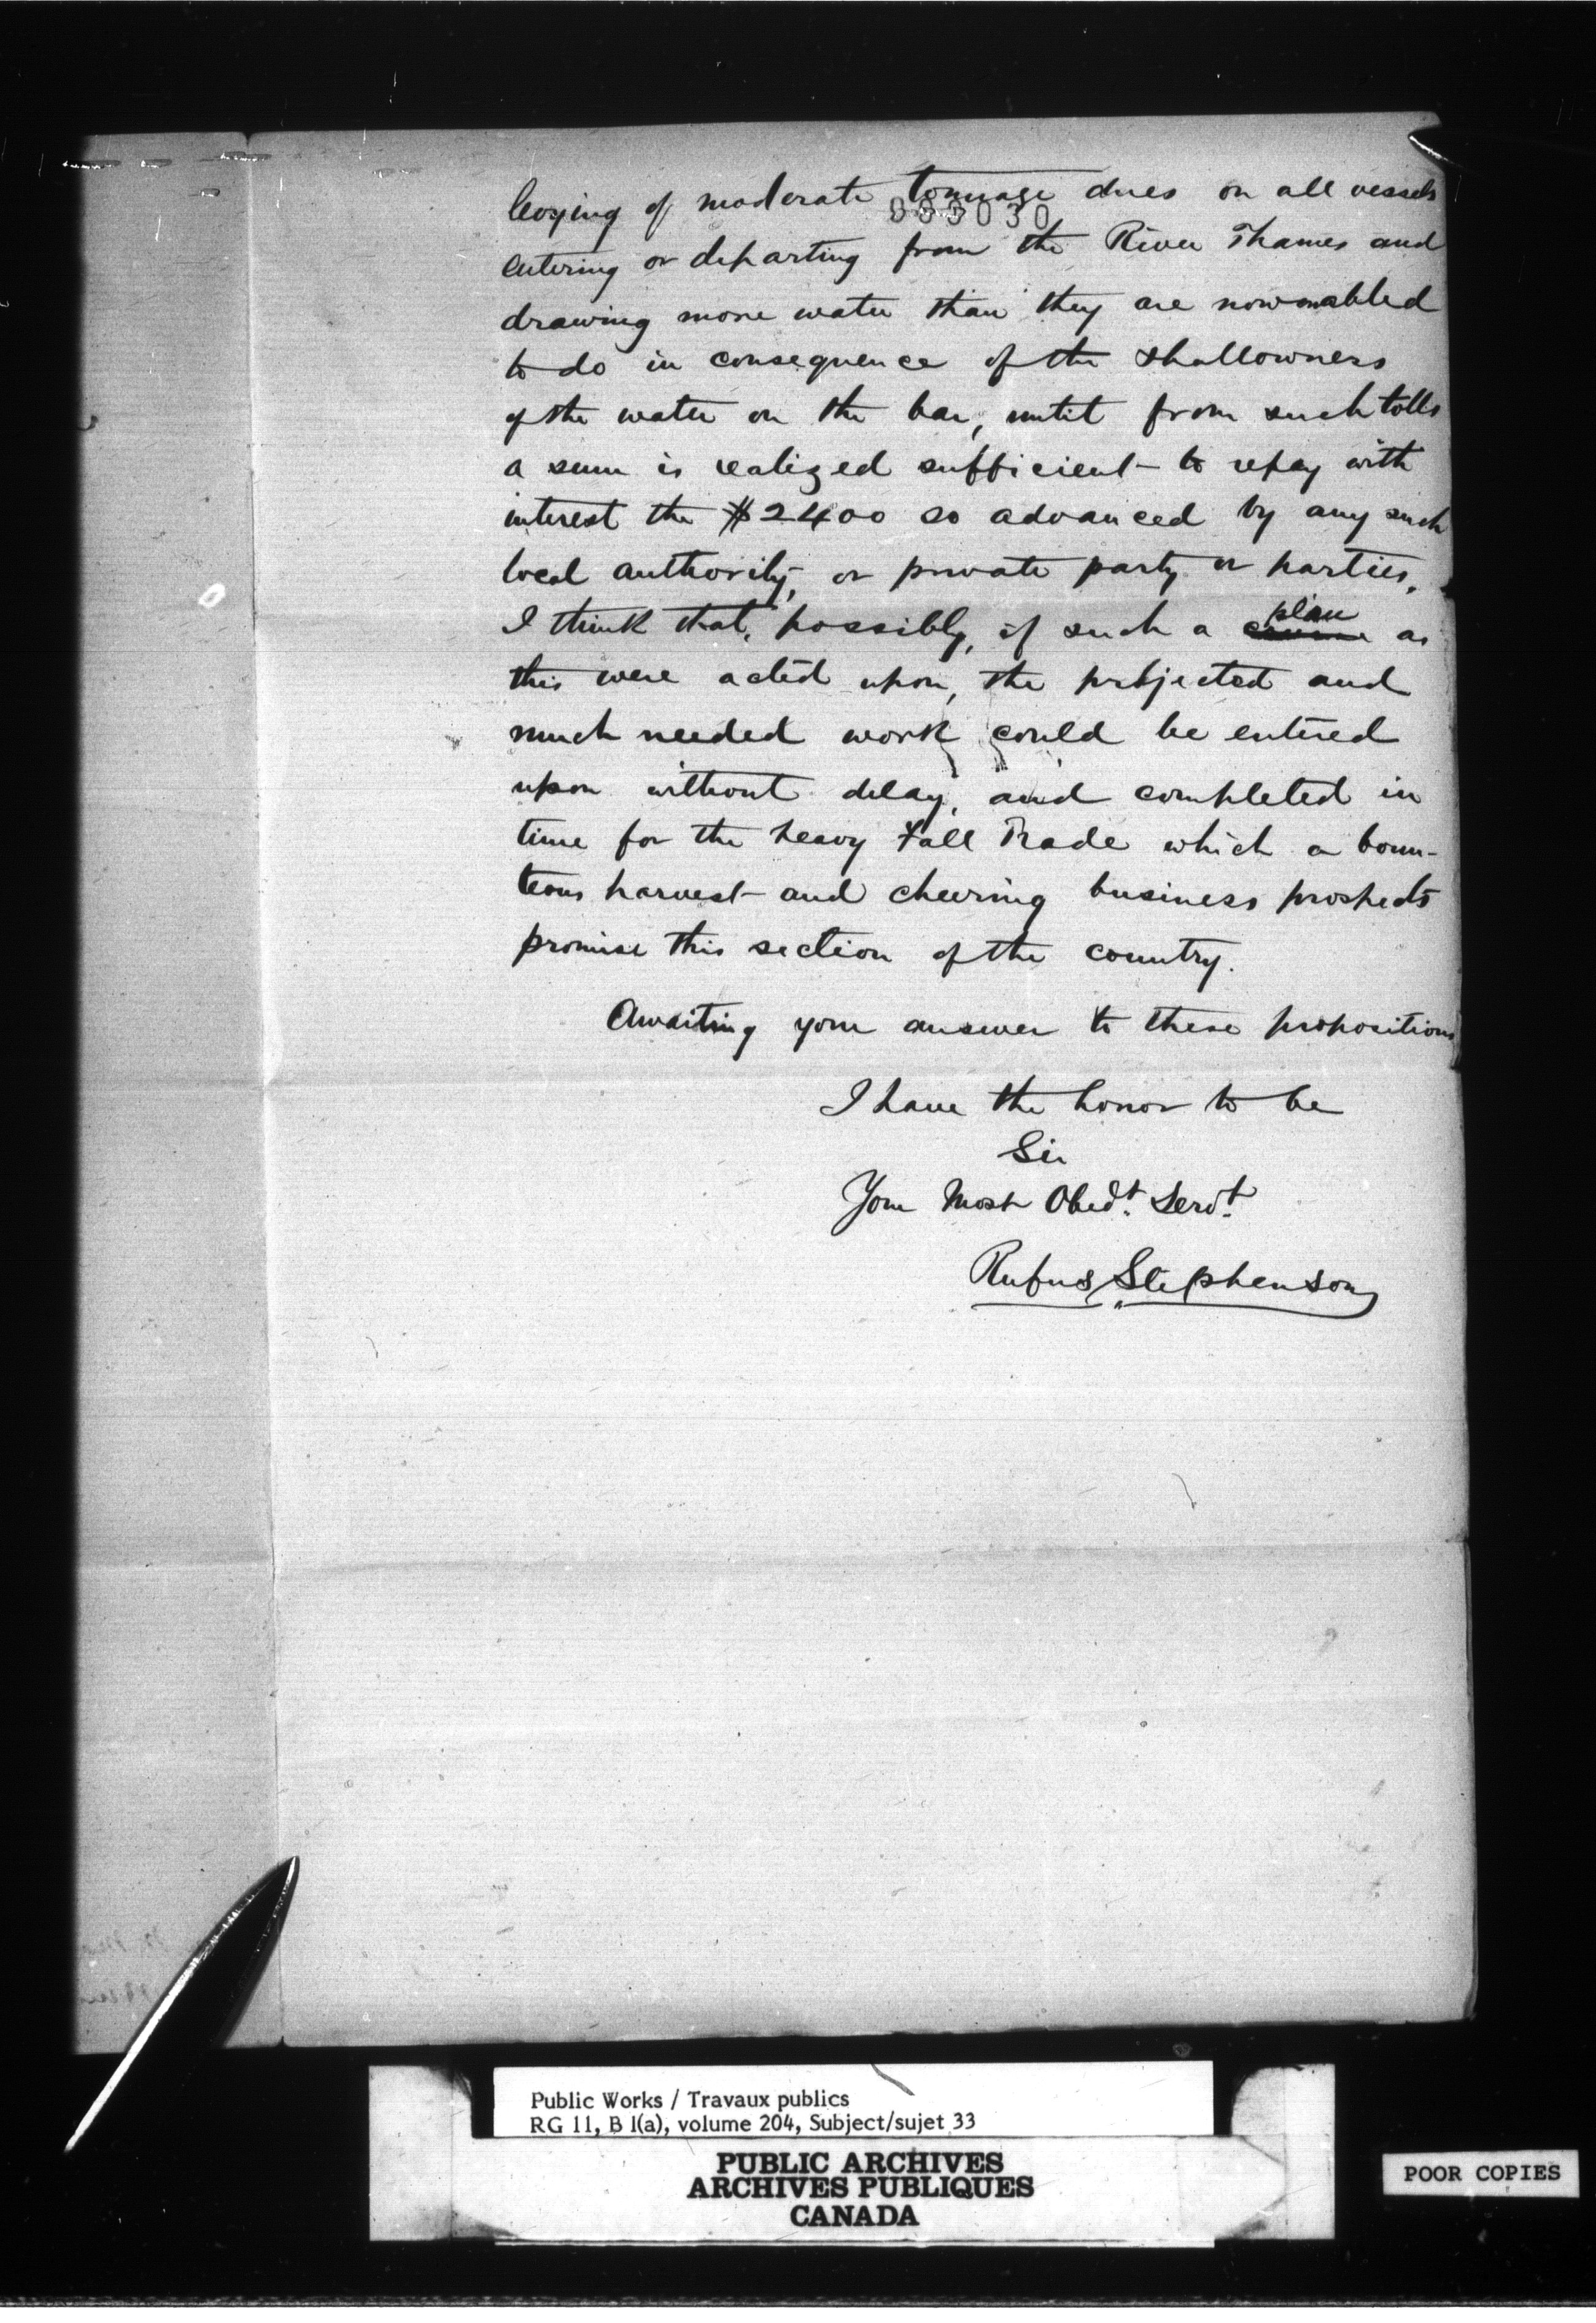 levying of moderate tonnage dues on all vessels
000030
entering or departing from the River Thames and
drawing more water than they are now enabled
to do in consequence of the shallowness
of the water on the bar, until from such tolls
a sum is realized sufficient to repay with
interest the $2400 so advanced by any such
local authority, or private party or parties.
plan
I think that, possibly, if such a as
this were acted upon, the projected and
much needed work could be entered
upon without delay, and completed in
time for the heavy Fall Trade which a boun-
teous harvest and cheering business prospects
promise this section of the country.
Awaiting your answer to these propositions
I have the honor to be
Sir
Your Most Obedt. Servt.
Rufus Stephenson
Public Works / Travaux publics
RG 11, B 1(a), volume 204, Subject/sujet 33
PUBLIC ARCHIVES
ARCHIVES PUBLIQUES
CANADA
POOR COPIES